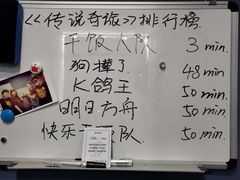 《传说奇旅》排行榜
干饭人队 3 min.
狗灌了 48 min
K鸽王 50 min
明日方舟 50 min.
快乐 队 50 min.